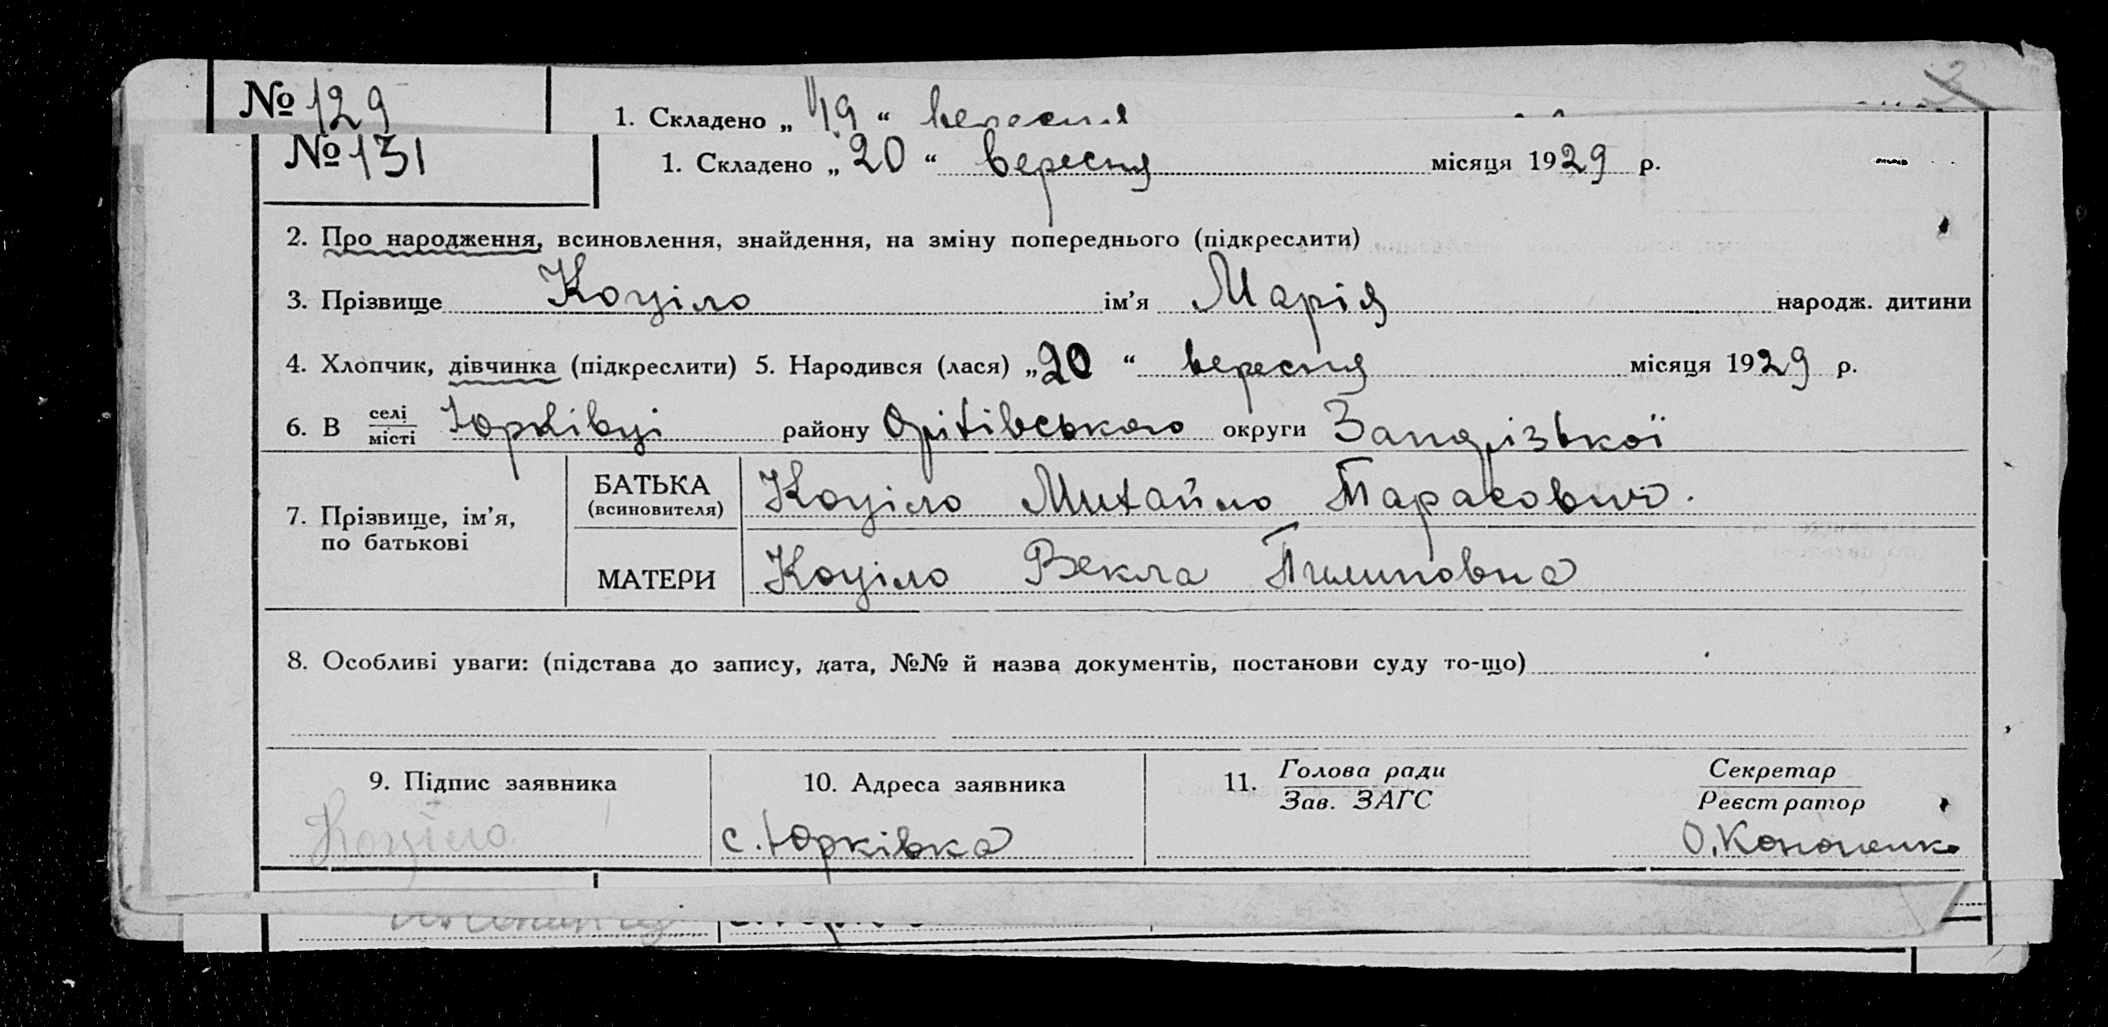 № 129
1. Складено „ 19 “ вересня
№ 131
1. Складено „ 20 “ вересня місяця 1929 р.
2. Про народження, всиновлення, знайдення, на зміну попереднього (підкреслити)
3. Прізвище Коціло ім’я Марія народж. дитини
4. Хлопчик, дівчинка (підкреслити) 5. Народився (лася) „20 “ вересня місяця 1929 р.
6. В селі
місті Юрківці району Оріхівського округи Запорізької
7. Прізвище, ім’я,
по батькові
БАТЬКА
(всиновителя)
Коціло Михайло Тарасович.
МАТЕРИ
Коціло Векла Пилиповна
8. Особливі уваги: (підстава до запису, дата, №№ й назва документів, постанови суду то-що)
9. Підпис заявника
Коціло
10. Адреса заявника
с. Юрківка
11. Голова ради
Зав. ЗАГС
Секретар
Реєстратор
О. Кононенко